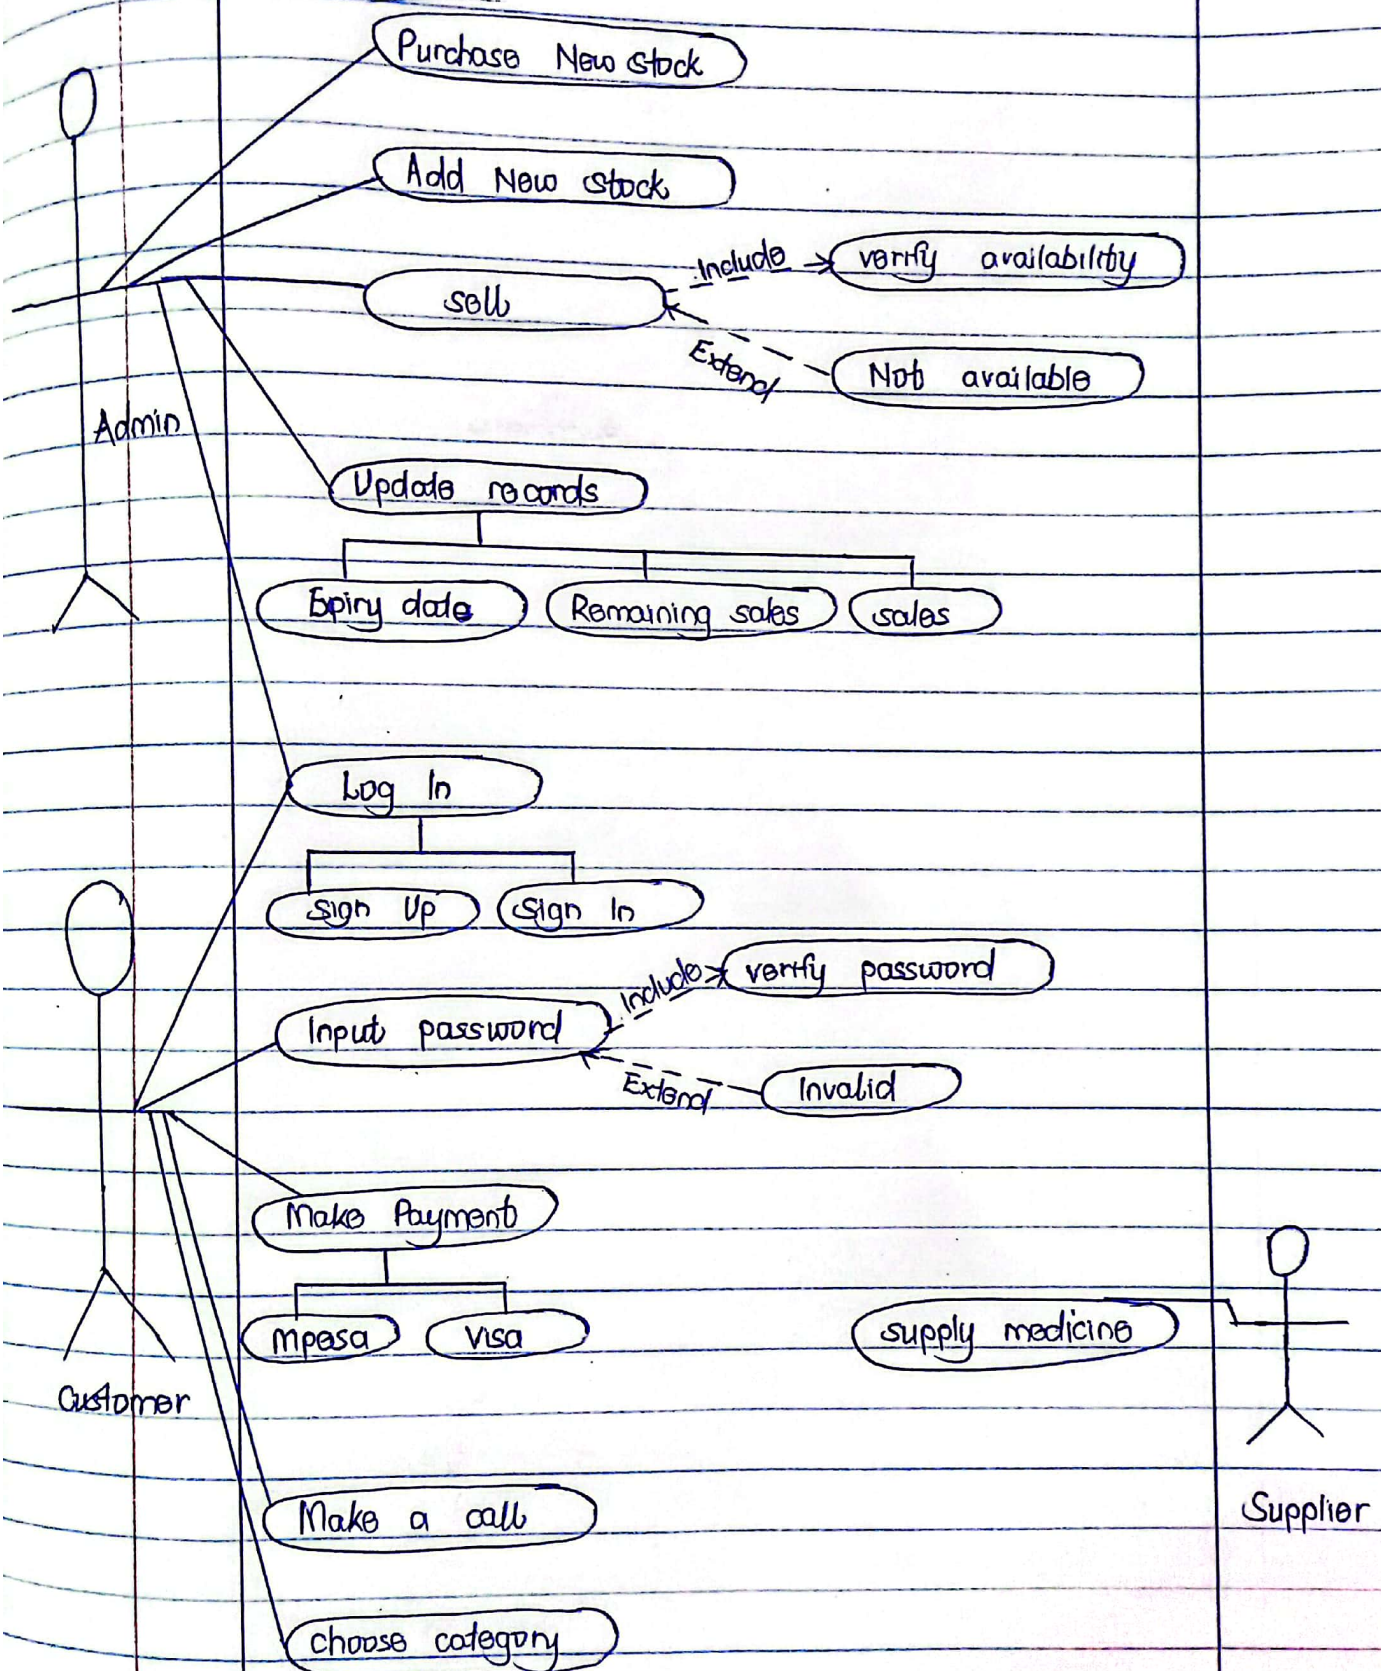 Purchase New stock
Add New stock
Include
verify availability
sell
Extend
Not available
Admin
Update records
Expiry date
Remaining sales
sales
Log In
sign Up
sign In
Include
verify password
Input password
Extend
Invalid
Make Payment
mpesa
visa
supply medicine
Customer
Make a call
Supplier
choose category